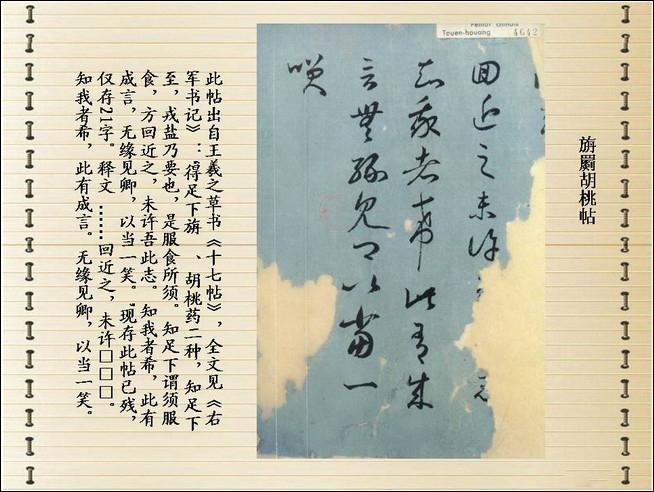 旃罽胡桃帖
Touen-houang 4642
回近之未許
知我者希此有成
言無緣見卿以當一
咲
此帖出自王羲之草书《十七帖》,全文见《右
军书记》:“得足下旃 、胡桃药二种,知足下
至,戎盐乃要也,是服食所须。知足下谓须服
食,方回近之,未许吾此志。知我者希,此有
成言,无缘见卿,以当一笑。”现存此帖已残,
仅存21字。释文 ……回近之,未许□□□。
知我者希,此有成言。无缘见卿,以当一笑。